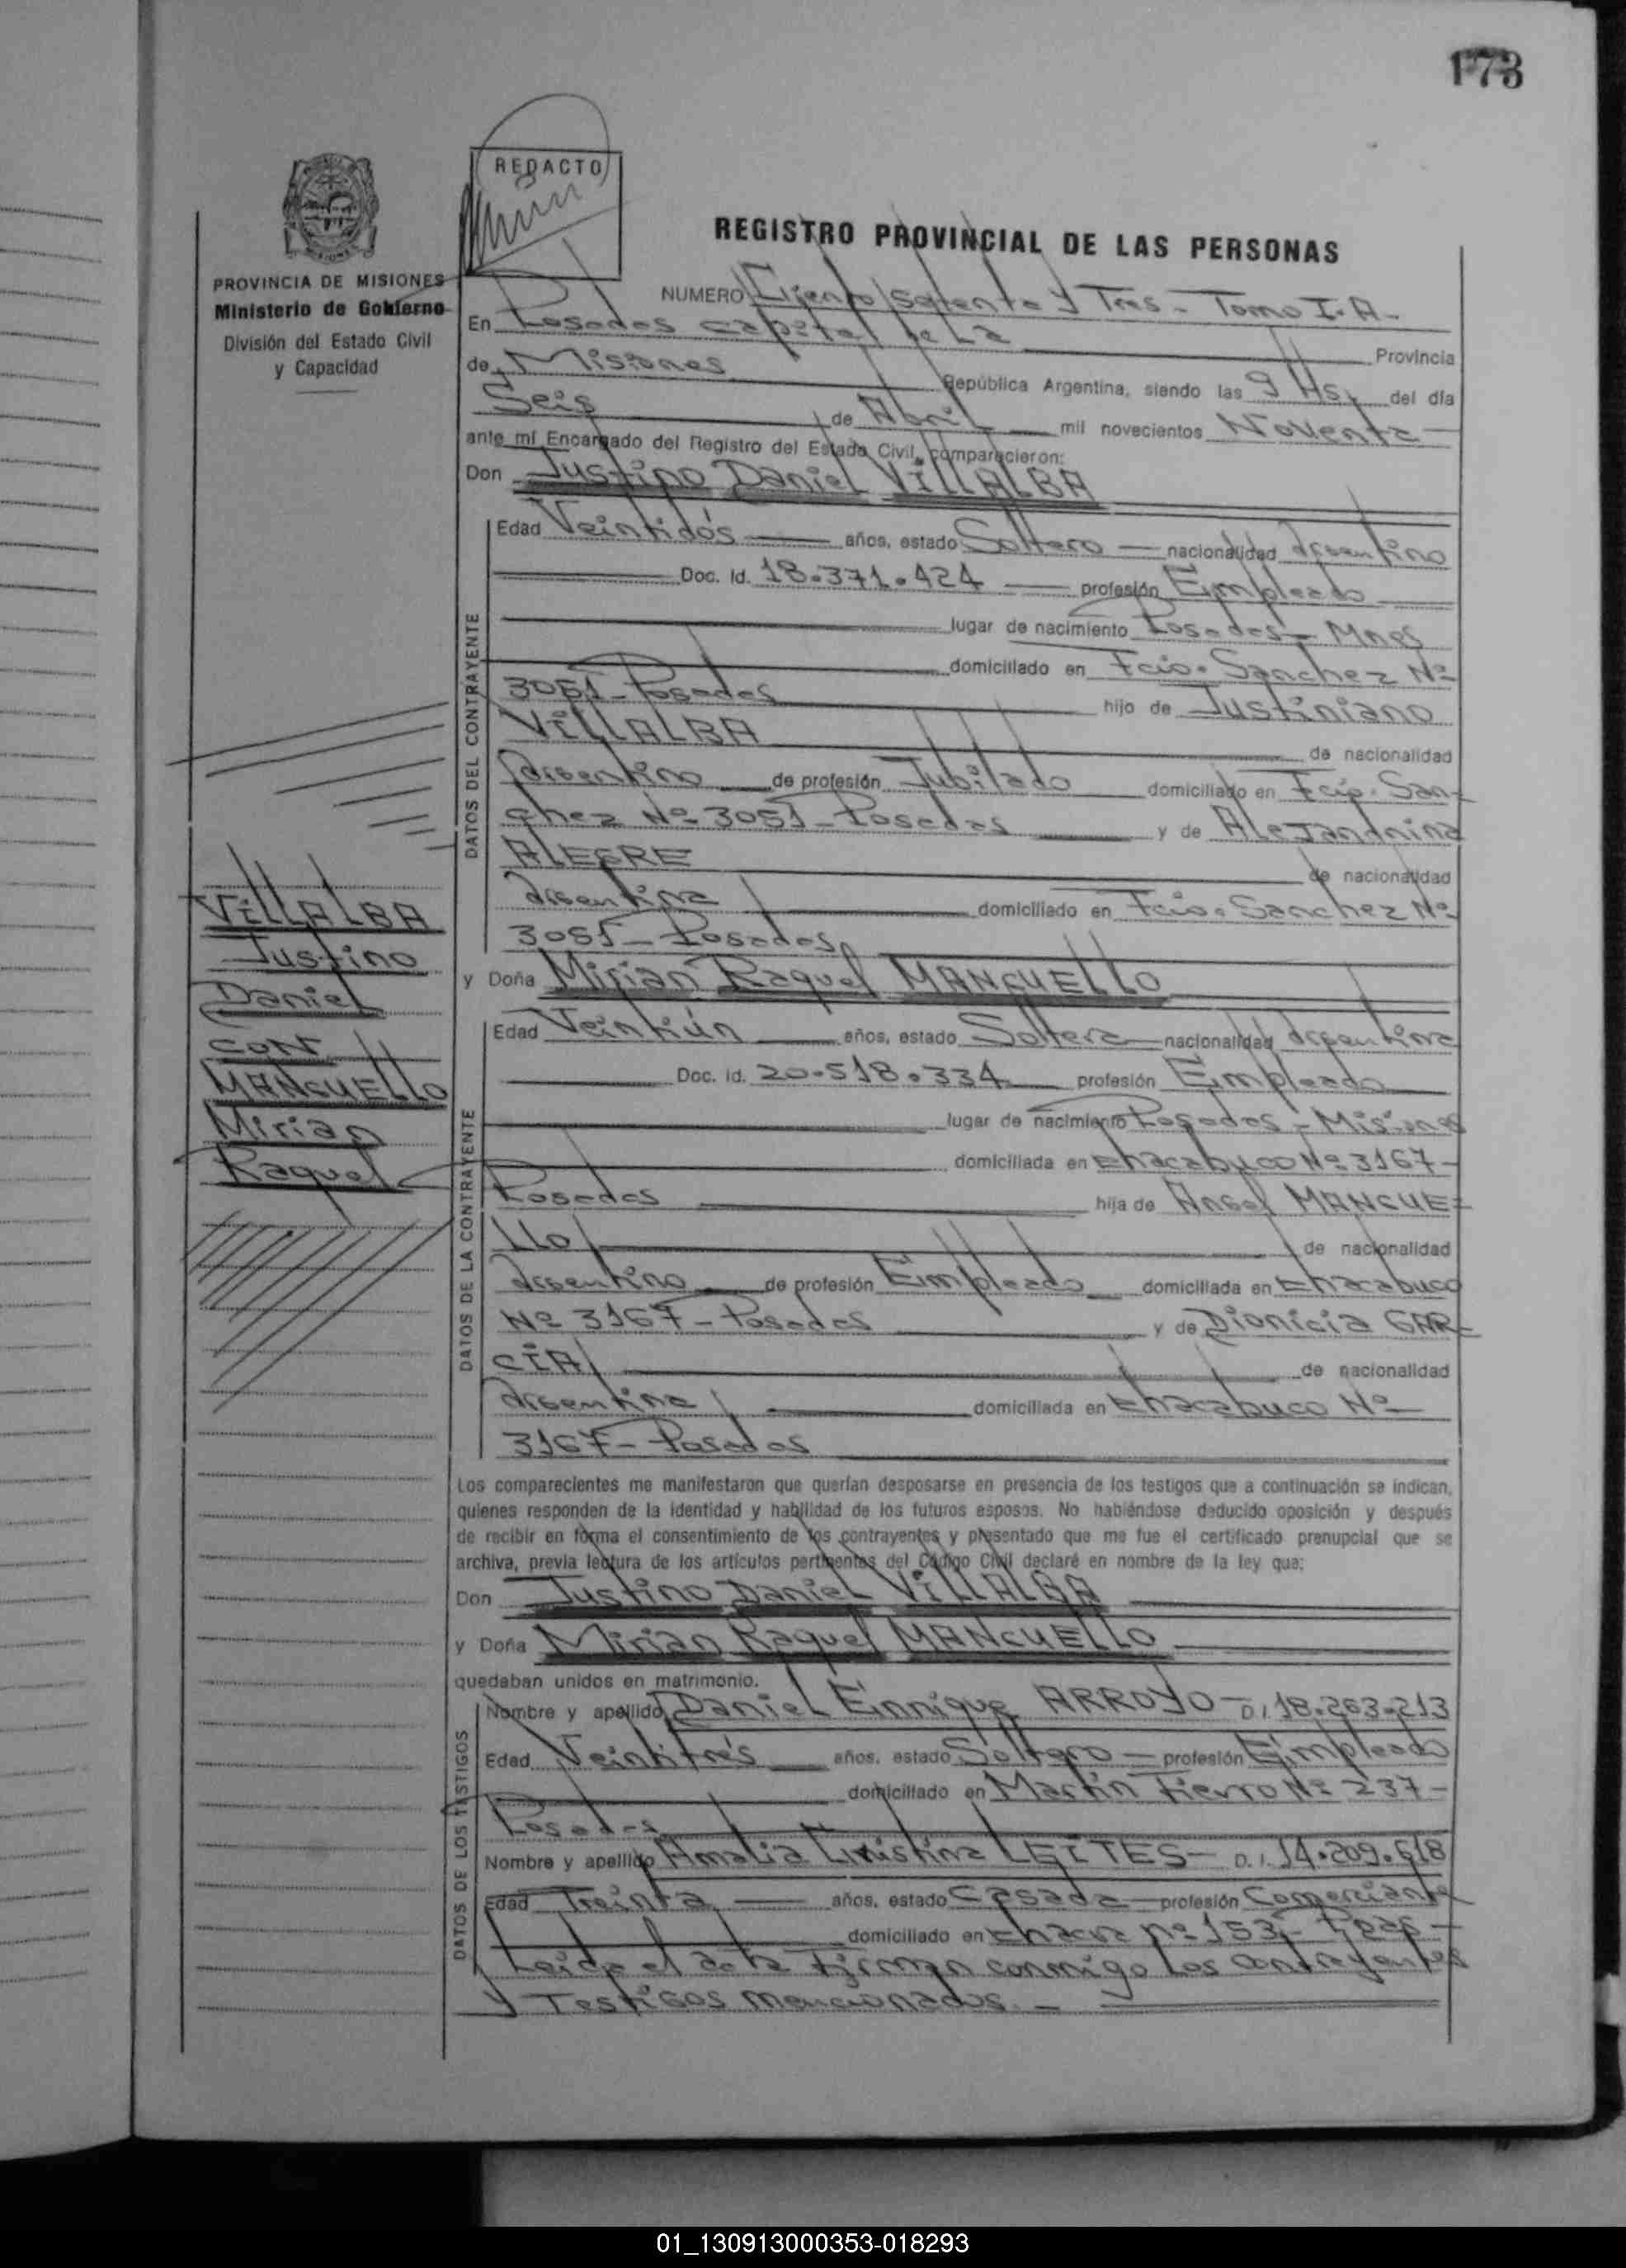 173
REDACTO
PROVINCIA DE MISIONES
Ministerio de Gobierno
División del Estado Civil
y Capacidad
REGISTRO PROVINCIAL DE LAS PERSONAS
NUMERO Ciento Setenta y Tres - Tomo I.A-
En Posadas Capital de La Provincia
de Misiones República Argentina, siendo las 9 Hs. del día
Seis de Abril mil novecientos Noventa
ante mí Encargado del Registro del Estado Civil, comparecieron:
Don Justino Daniel VILLALBA
DATOS DEL CONTRAYENTE
Edad Veintidós años, estado Soltero nacionalidad Argentino
Doc. Id. 18.371.424 profesión Empleado
lugar de nacimiento Posadas - Mnes
domiciliado en Fcio. Sanchez Nº
3051 - Posadas hijo de Justiniano
VILLALBA de nacionalidad
Argentino de profesión Jubilado domiciliado en Fcio. San-
chez Nº 3051 - Posadas y de Alejandrina
ALEGRE de nacionalidad
Argentina domiciliado en Fcio. Sanchez Nº
3051 - Posadas
VILLALBA
Justino
Daniel
con
MANCUELLO
Mirian
Raquel
y Doña Mirian Raquel MANCUELLO
DATOS DE LA CONTRAYENTE
Edad Veintiún años, estado Soltera nacionalidad Argentina
Doc. Id. 20.518.334 profesión Empleada
lugar de nacimiento Posadas - Misiones
domiciliada en Chacabuco Nº 3167-
Posadas hija de Angel MANCUE-
LLO de nacionalidad
Argentino de profesión Empleado domiciliada en Chacabuco
Nº 3167 - Posadas y de Dionicia GAR-
CIA de nacionalidad
Argentina domiciliada en Chacabuco Nº
3167 - Posadas
Los comparecientes me manifestaron que querían desposarse en presencia de los testigos que a continuación se indican,
quienes responden de la identidad y habilidad de los futuros esposos. No habiéndose deducido oposición y después
de recibir en forma el consentimiento de los contrayentes y presentado que me fue el certificado prenupcial que se
archiva, previa lectura de los artículos pertinentes del Código Civil declaré en nombre de la ley que:
Don Justino Daniel VILLALBA
y Doña Mirian Raquel MANCUELLO
quedaban unidos en matrimonio.
DATOS DE LOS TESTIGOS
Nombre y apellido Daniel Enrique ARROYO - D.I. 18.263.213
Edad Veintitrés años, estado Soltero - profesión Empleado
domiciliado en Martín Fierro Nº 237-
Posadas
Nombre y apellido Amalia Cristina LEITES - D.I. 14.209.618
Edad Treinta años, estado Casada - profesión Comerciante
domiciliado en Chacra nº 153
Leida el acta Firman conmigo Los Contrayentes
y Testigos mencionados. -
01_130913000353-018293